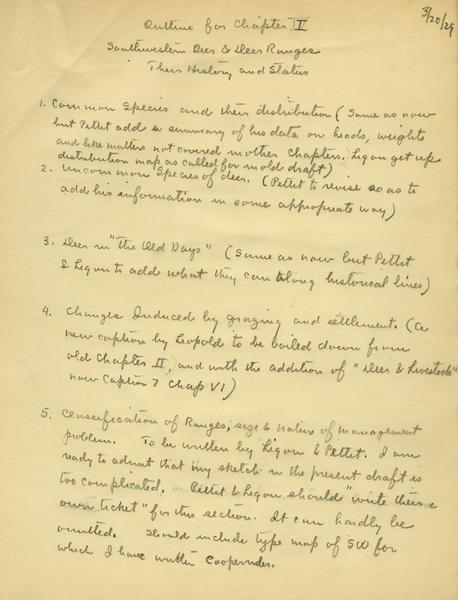 3/20/29
Outline for Chapter II
Southwestern Deer & Deer Ranges
Their History and Status
1. Common Species and their distribution (Same as now
but Pettit add a summary of his data on heads, weights
and like matters not covered in other chapters. Ligon get up
distribution map as called for in old draft)
2. Uncommon Species of deer. (Pettit to revise so as to
add his information in some appropriate way)
3. Deer in "the Old Days" (Same as now but Pettit
& Ligon to add what they can along historical lines)
4. Changes Induced by grazing and settlement. (a
new caption by Leopold to be boiled down from
old Chapter II, and with the addition of "Deer & Livestock"
now Caption 7 Chap VI)
5. Classification of Ranges; size & nature of management
problem. To be written by Ligon & Pettit. I am
ready to admit that my sketch in the present draft is
too complicated. Pettit & Ligon should "write their
own ticket" for this section. It can hardly be
omitted. Should include type map of SW for
which I have written Cooperrider.